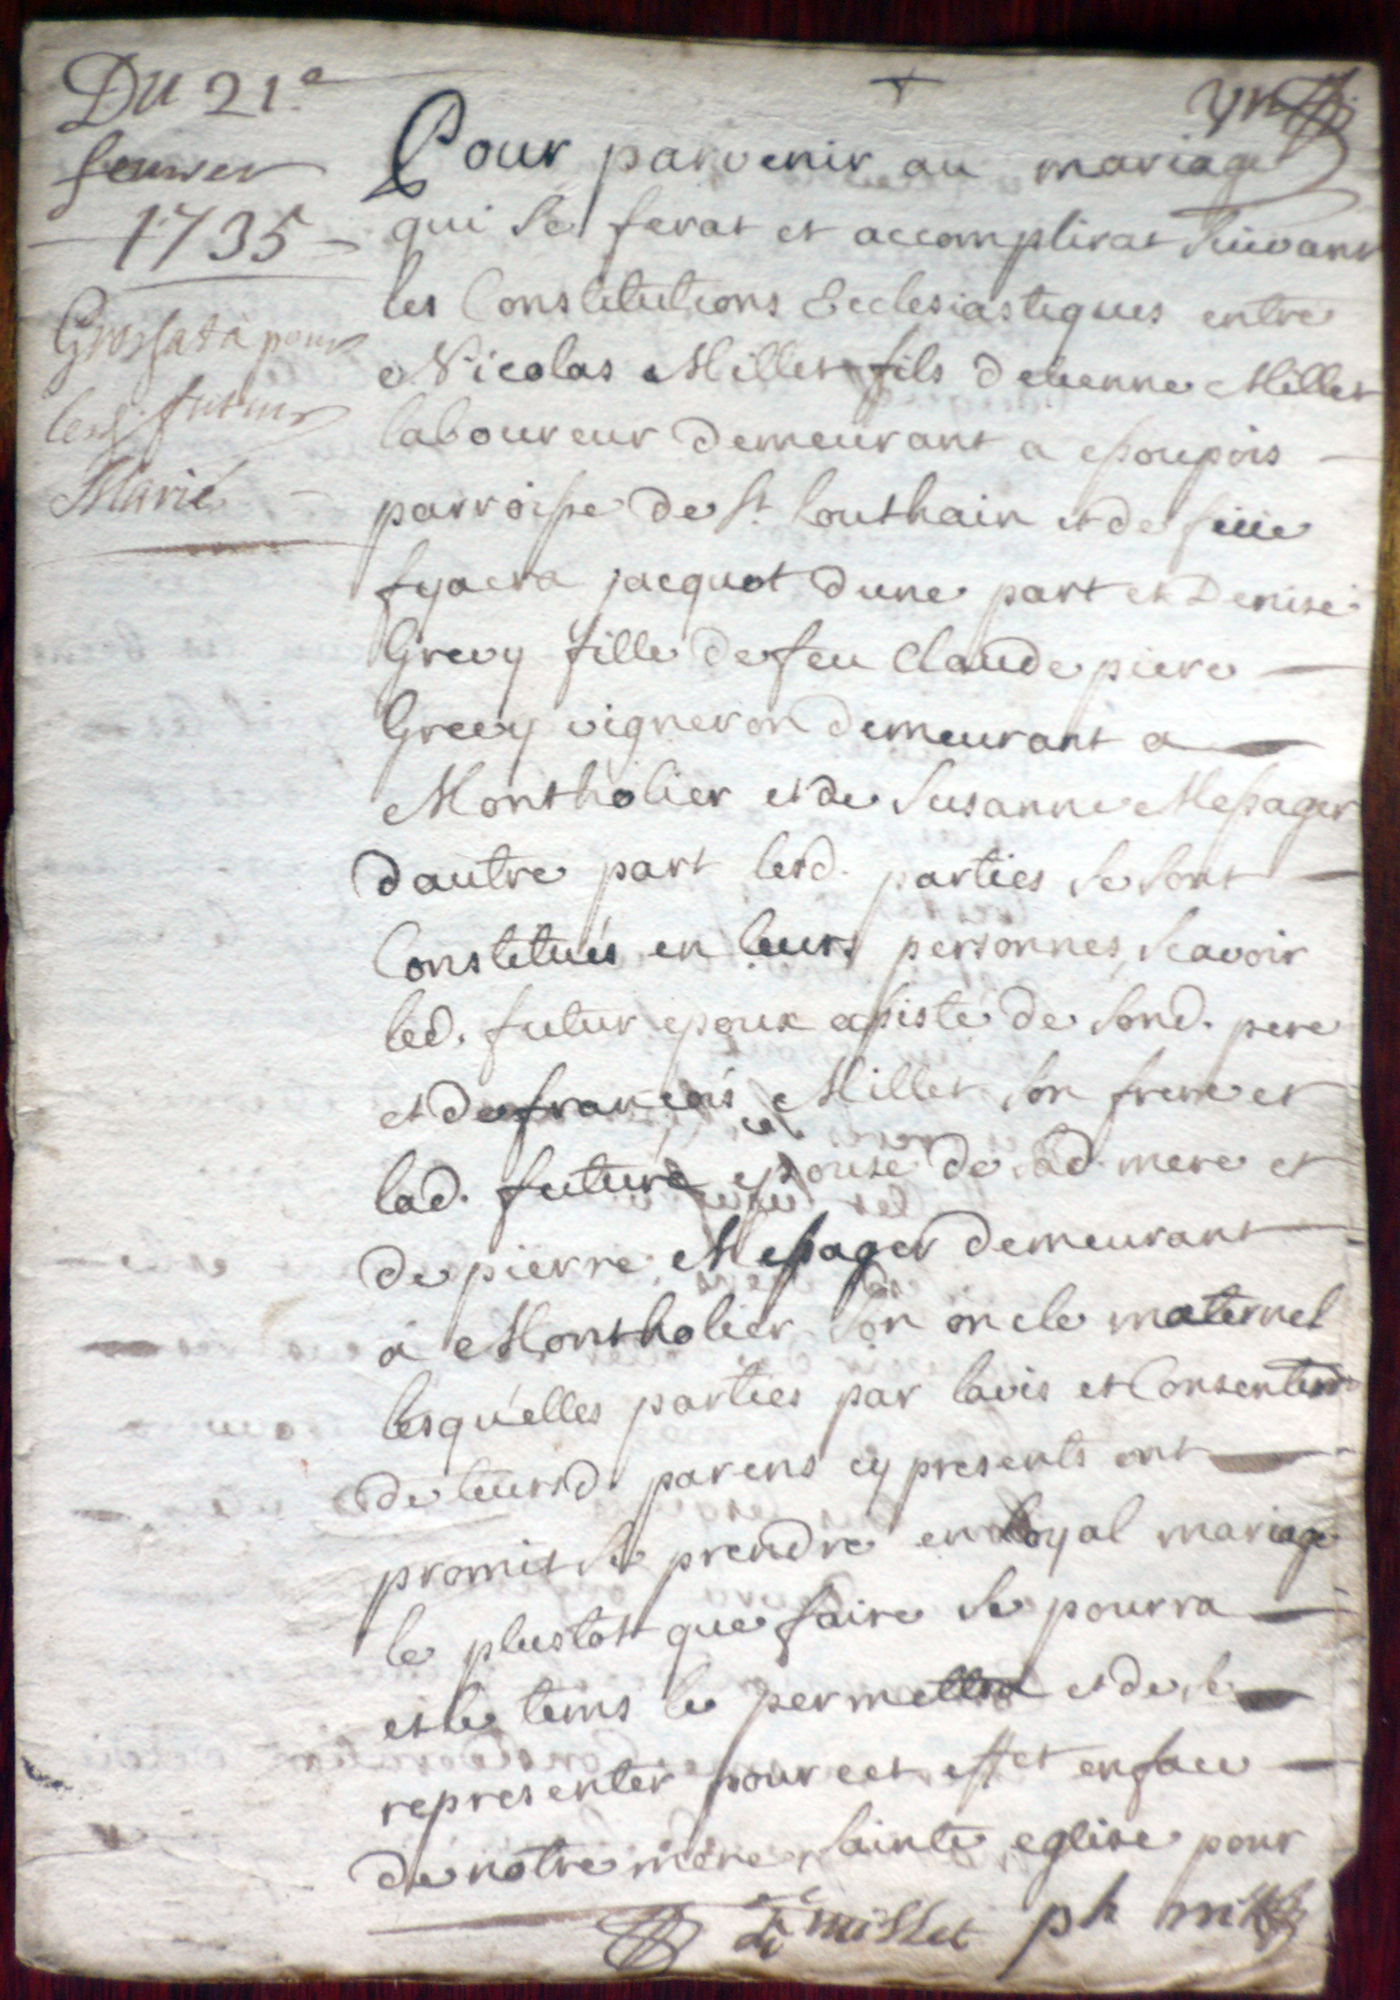 Du 21e
feuvrier
1735
Grossata pour
lesd. futur
Marié
Pour parvenir au mariage
qui se ferat et accomplirat suivant
les Constitutions Ecclesiastiques entre
Nicolas Millet fils detienne Millet
laboureur demeurant a
parroisse de St. Louthain et de feüe
fyacra jacquot dune part et Denise
Grevy fille de feu Claude piere
Grevy vigneron demeurant a
Montholier et de Susanne Messager
dautre part lesd. parties se sont
Constitués en leurs personnes, scavoir
led. futur epoux assisté de sond. pere
et de francois Millet son frere et
lad. future epouse de sad. mere et
de pierre Messager demeurant
a Montholier son oncle maternel
lesquelles parties par lavis et Consentem
de leursd. parens cy presents ont
promit se prendre en loyal mariage
le plustost que faire se pourra
et le tems le permettra et de se
representer pour cet effet en face
de notre mere sainte eglise pour
millet ph